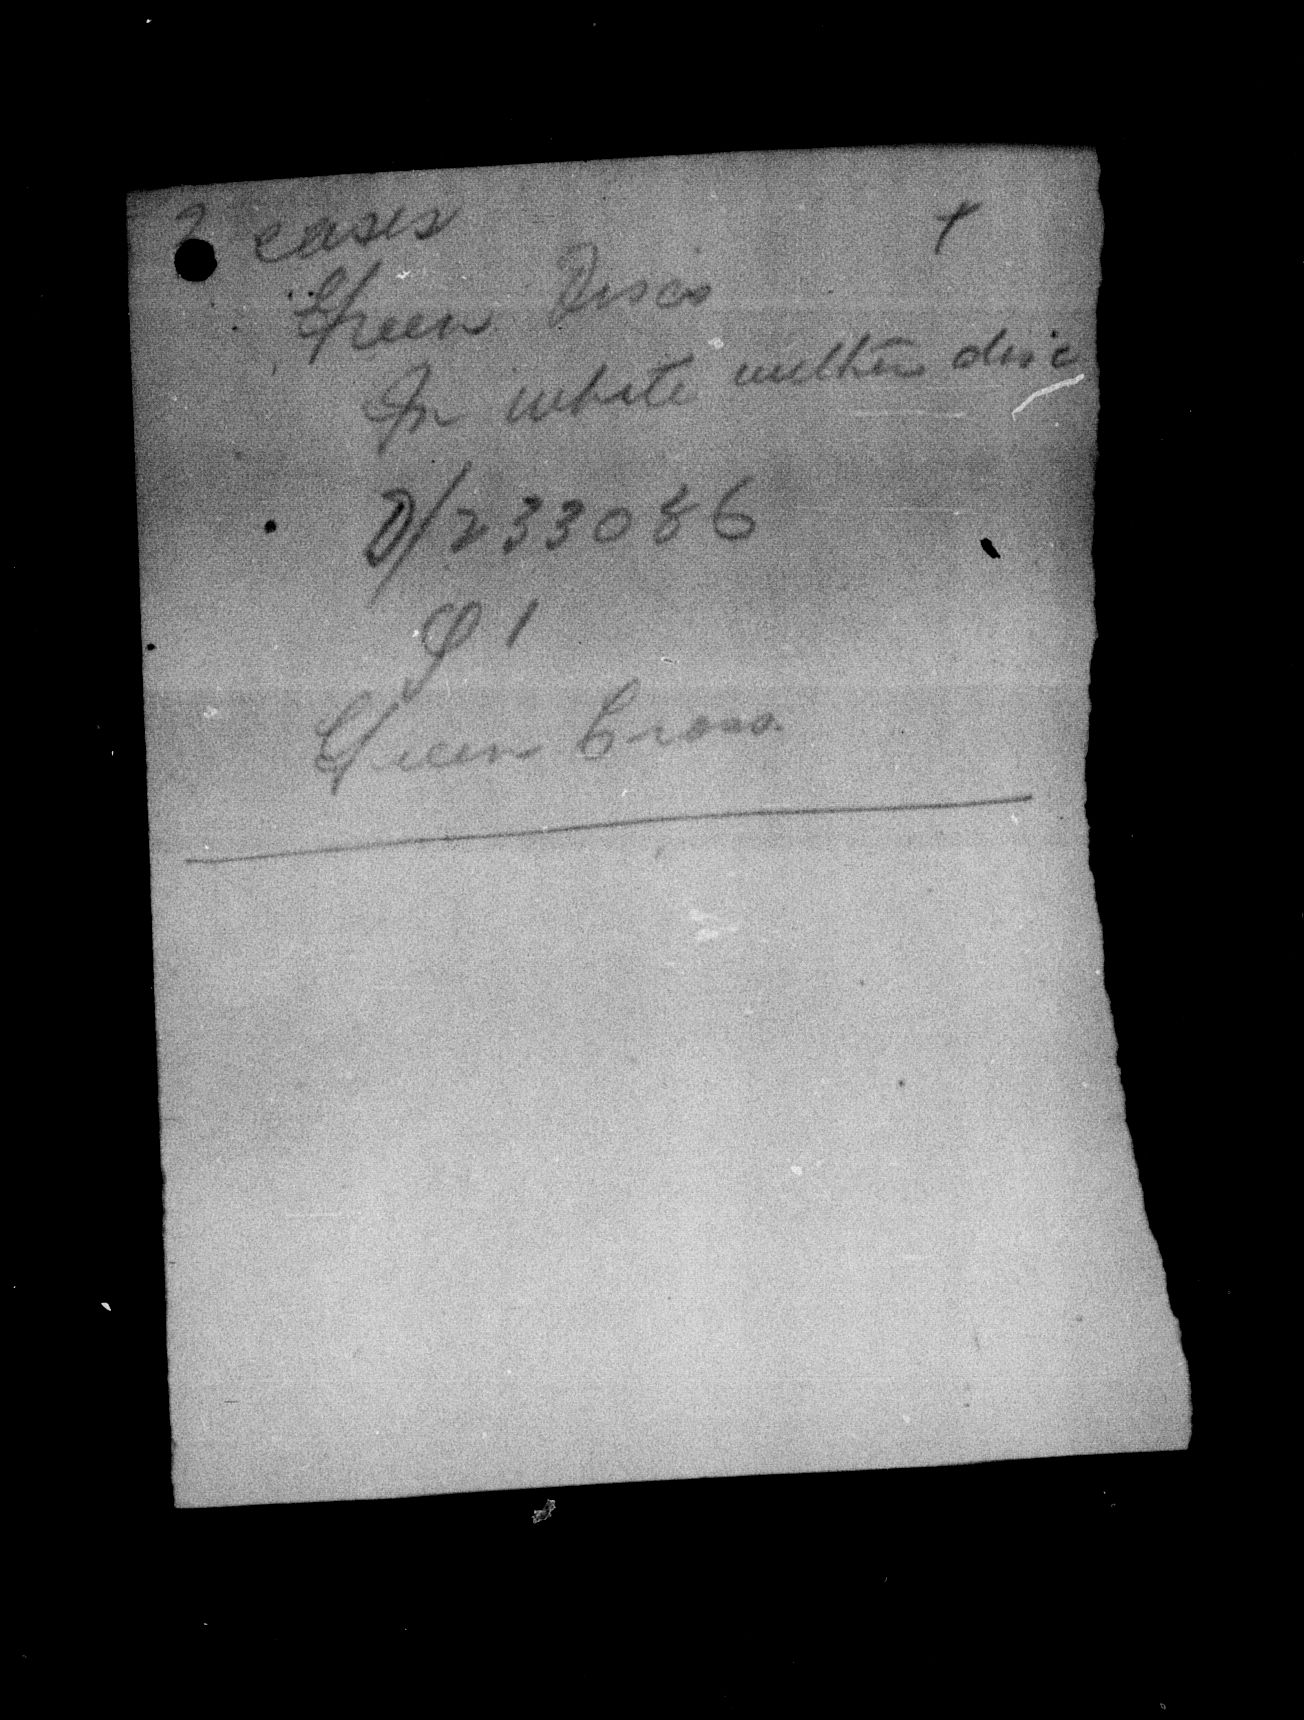 2 cases
Green Discs
In white within disc
D/233086
J 1
Green Cross.